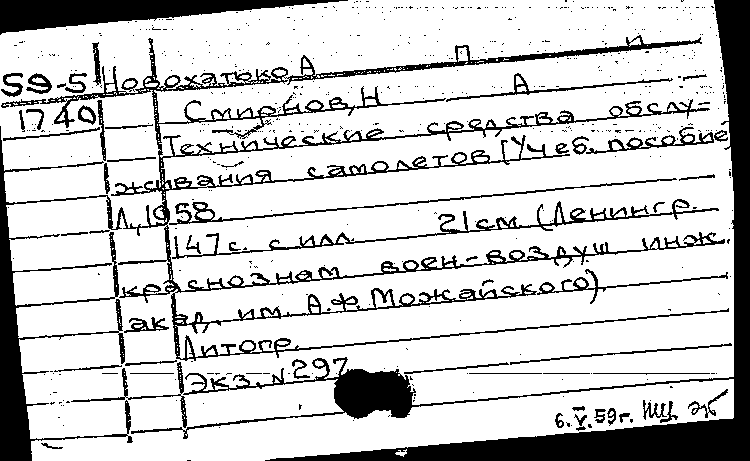 59-5 Новохатько, А П И
1740 Смирнов, Н А
Технические средства обслу=
живания самолетов [Учеб. пособие
Л., 1958.
147 с. с илл. 21 см. (Ленингр.
краснознам военно-воздуш инж.
акад. им. А.Ф. Можайского).
Литогр.
Экз. № 297
6.V.59г.